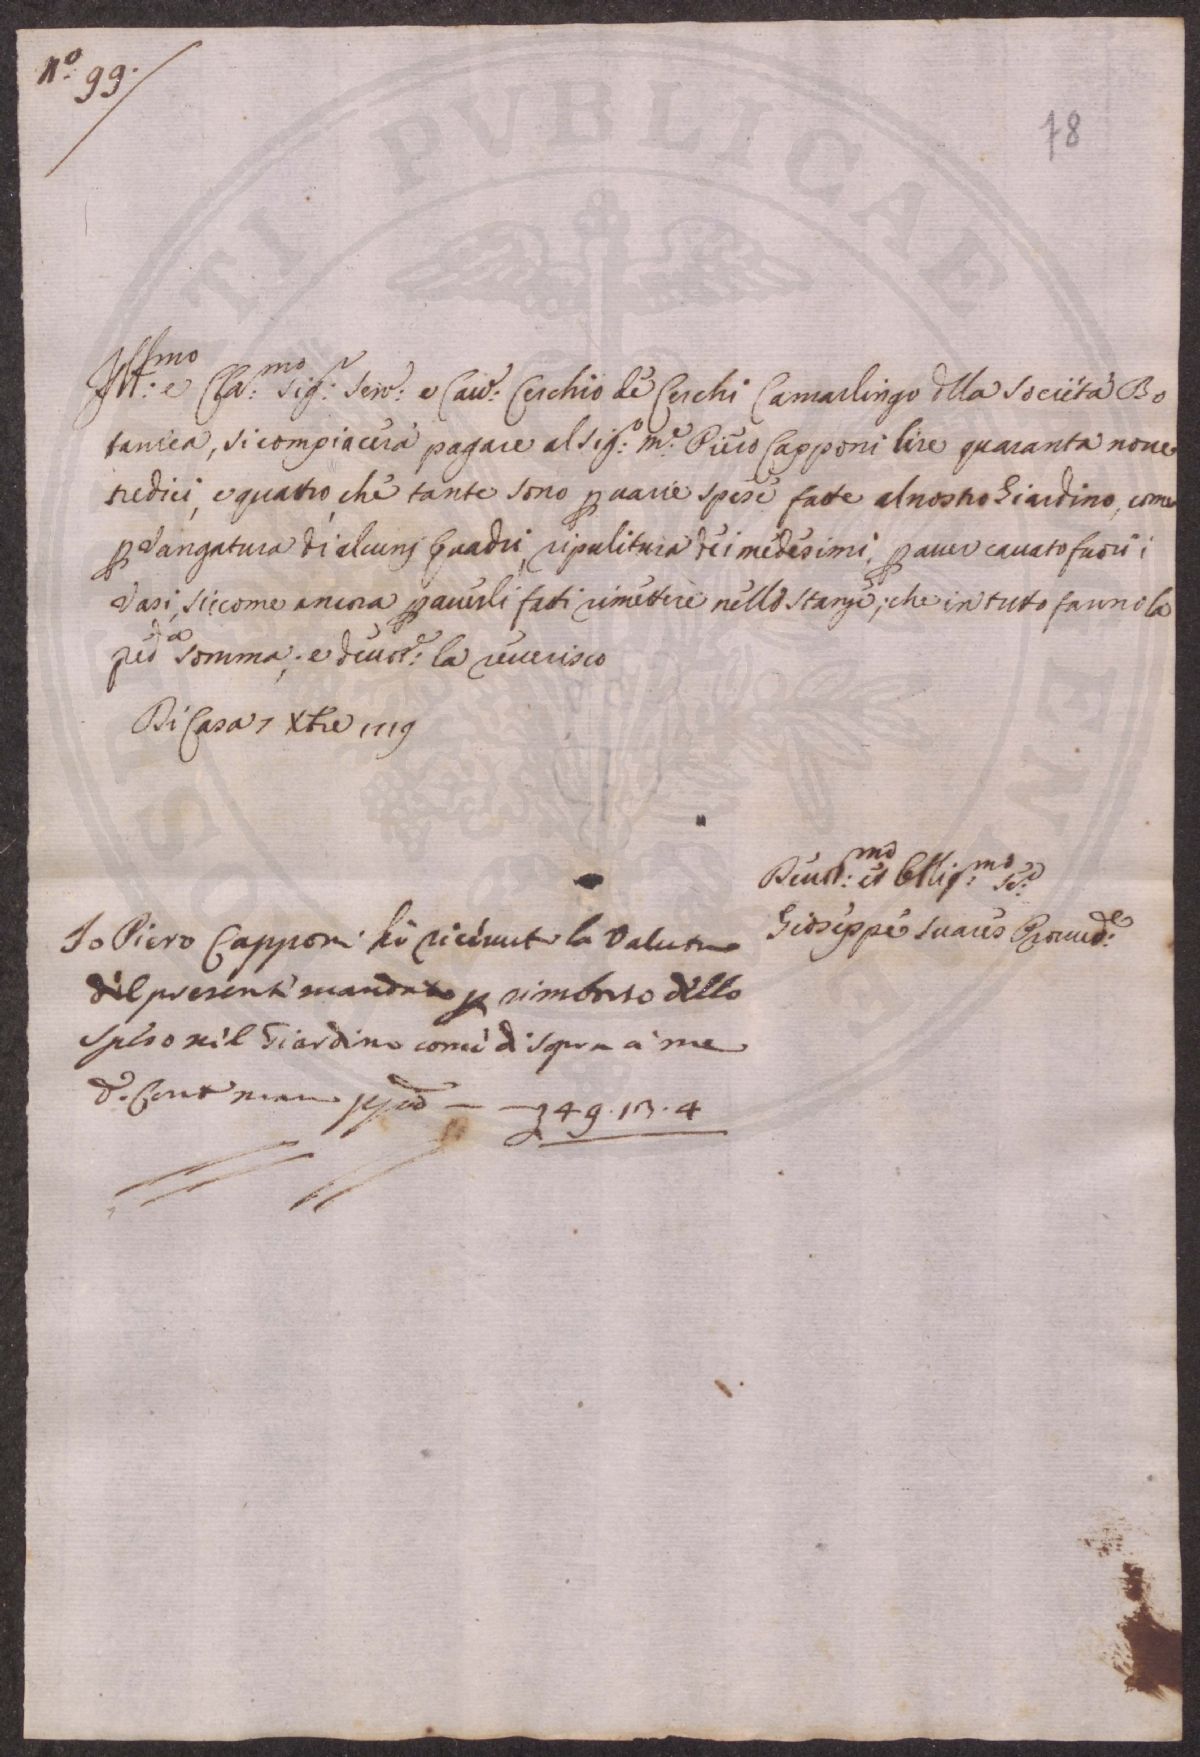 N.º 99.
78
Ill.mo e Cla.mo Sig.r Sen.e e Cav.e Cerchio de Cerchi Camarlingo dlla Società Bo
tanica, si compiacerà pagare al Sig.r m.o Piero Capponi lire quaranta nove
tredici, e quattro, che tante sono p varie spese fatte al nostro Giardino, come
p Vangatura di alcuni Quadri, ripulitura dei medesimi, p aver cavato fuori i
Vasi, siccome ancora p averli fatti rimettere nello Stanze; che in tutto fanno la
pred.a somma; e devot.e la reverisco
Di Casa 7 Xbre 1719
Devot.mo et Obblig.mo Se.e
Gioseppe Suares Proved.e
Io Piero Capponi hò ricevut la Valuta
del presente mandato p rimborso dello
speso nel Giardino come di sopra a me
d.o Cont man pp — — 49.13.4
PUBLICAE